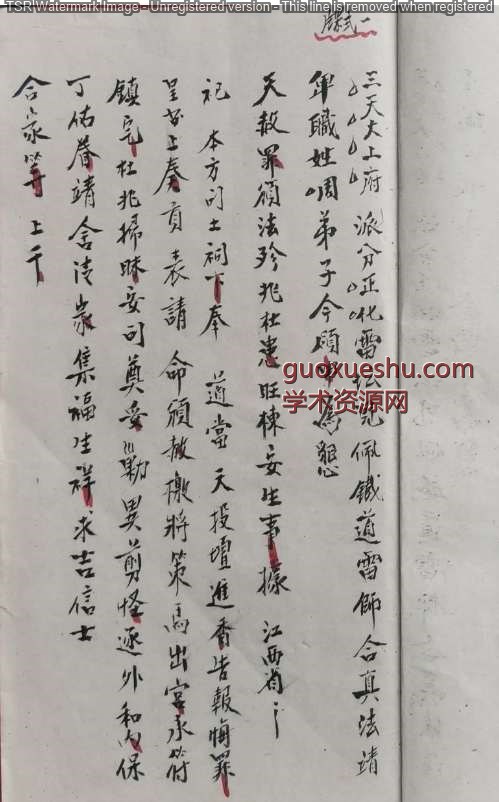 TSR Watermark Image - Unregistered version - This line is removed when registered
牒式一
三天大上府 派分正化雷坛 佩鐵道雷師合真法靖
卑職姓 啁弟子今頒 為懇
天赦罪頒法殄兆杜患旺棟安生事據 江西省
祀 本方司土祠下奉 道當天投壇進香告報悔罪
呈安上奏貢表請 命頒赦檄將策馬出宮永付
鎮宅杜兆掃昧安司奠妥 異剪怪逐外和內保
丁佑眷靖舍清家集福生祥求吉信士
合家等 上千
guoxueshu.com
学术资源网